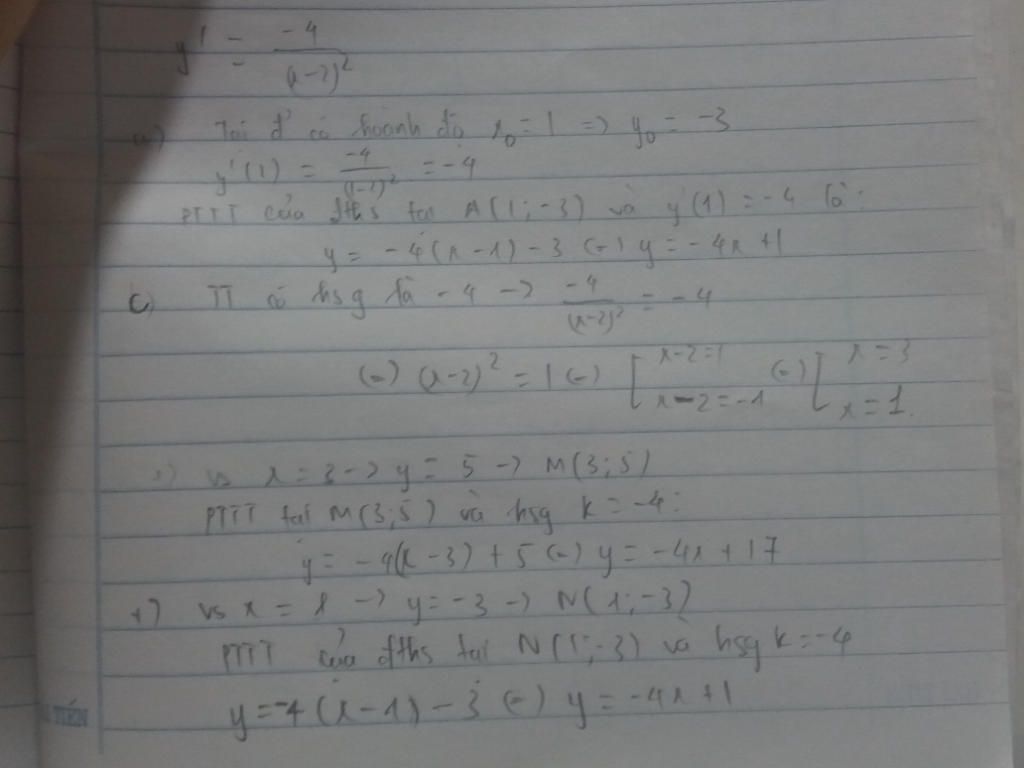 y' = -4/(x-2)²
a) Tại đ' có hoành độ x₀ = 1 => y₀ = -3
y'(1) = -4/(1-2)² = -4
PTTT của đths tại A(1;-3) và y'(1) = -4 là:
y = -4(x-1) - 3 (=) y = -4x + 1
c) TT có hsg là -4 -> -4/(x-2)² = -4
(=) (x-2)² = 1 (=) [ x-2=1 (=) [ x = 3
x-2 = -1 x = 1.
vs x = 3 -> y = 5 -> M(3;5)
PTTT tại M(3;5) và hsg k = -4:
y = -4(x-3) + 5 (=) y = -4x + 17
+) vs x = 1 -> y = -3 -> N(1;-3)
PTTT của đths tại N(1;-3) và hsg k = -4
y = -4(x-1) - 3 (=) y = -4x + 1
TIẾN